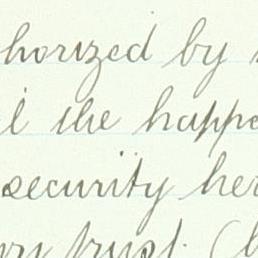 horized by
l the happe
security her
trust. (